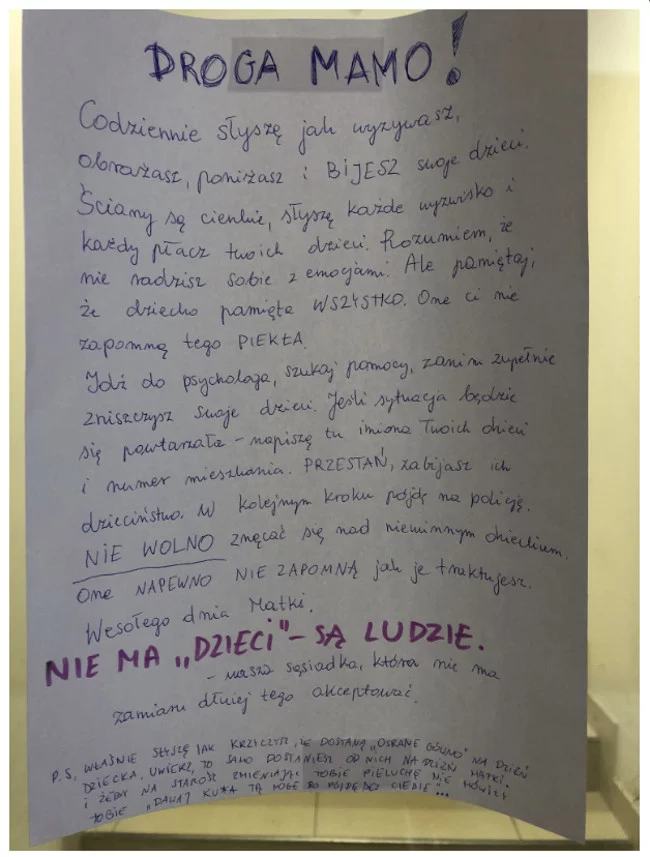 DROGA MAMO!
Codziennie słyszę jak wyzywasz,
obrażasz, poniżasz i BIJESZ swoje dzieci.
Ściany są cienkie, słyszę każde wyzwisko i
każdy płacz twoich dzieci. Rozumiem, że
nie radzisz sobie z emocjami. Ale pamiętaj,
że dziecko pamięta WSZYSTKO. One ci nie
zapomną tego PIEKŁA.
Idź do psychologa, szukaj pomocy, zanim zupełnie
zniszczysz swoje dzieci. Jeśli sytuacja będzie
się powtarzała – napiszę tu imiona Twoich dzieci
i numer mieszkania. PRZESTAŃ, zabijasz ich
dzieciństwo. W kolejnym kroku pójdę na policję.
NIE WOLNO znęcać się nad niewinnym dzieckiem.
One NAPEWNO NIE ZAPOMNĄ jak je traktujesz.
Wesołego dnia Matki.
NIE MA „DZIECI" – SĄ LUDZIE.
- wasza sąsiadka, która nie ma
zamiaru dłużej tego akceptować.
P.S. WŁAŚNIE SŁYSZĘ JAK KRZYCZYSZ, ŻE DOSTANĄ „OSRANE GÓWNO" NA DZIEŃ
DZIECKA, UWIERZ, TO SAMO DOSTANIESZ OD NICH NA DZIEŃ MATKI.
I ŻEBY NA STAROŚĆ ZMIENIAJĄC TOBIE PIELUCHĘ NIE MÓWILI
TOBIE „DAWAJ KU*A TĄ NOGĘ BO PÓJDĘ DO CIEBIE"...